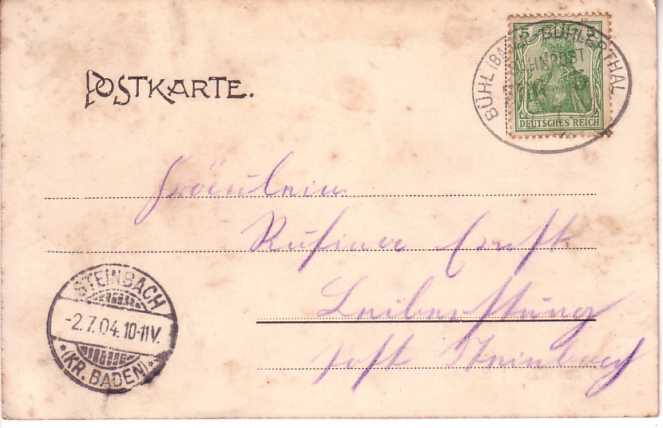 POSTKARTE.
BÜHL (BADEN)-BÜHLERTHAL
BAHNPOST
5 5
DEUTSCHES REICH
Fräulein
Rufina Ernst
Leiberstung
Post Steinbach
STEINBACH
-2.7.04.10-11V.
*(KR. BADEN)*